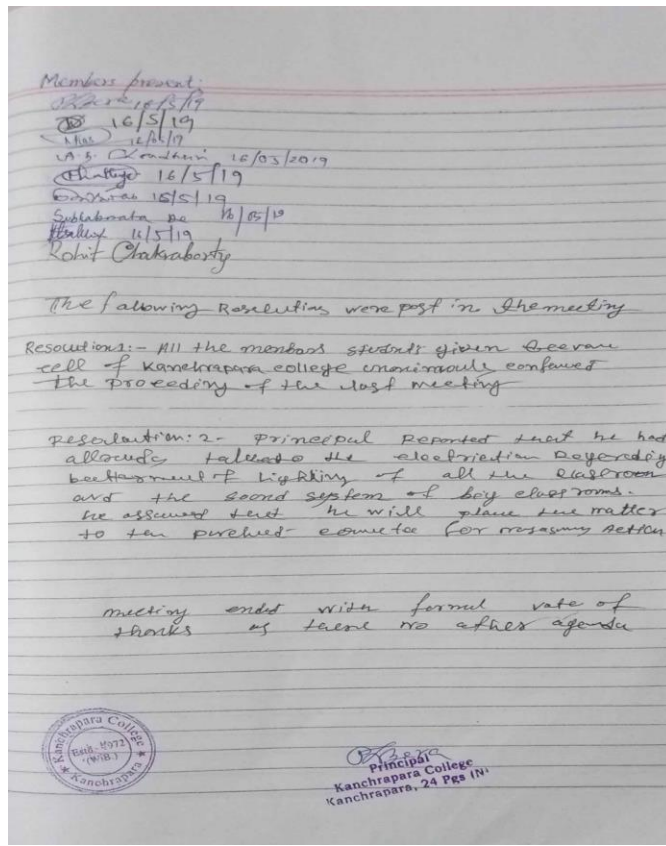 Members present:
16/5/19
16/5/19
A.S. 16/05/2019
16/5/19
15/5/19
Subhabrata De 16/05/19
16/5/19
Rohit Chakraborty
The following Resolutions were past in the meeting
Resoutions:- All the menbars students given
cell of Kanchrapara college unonimously
the proceeding of the last meeting
Resolution: 2- Principal Reported that he had
to the electrician Regarding
of Lighting of all the classroom
and the sound system of big class rooms.
he assured that he will place the matter
to the for action
meeting ended with formal vote of
thanks as there no other agenda
Kanchrapara College
Estd.-1972
(W.B.)
Kanchrapara
Principal
Kanchrapara College
Kanchrapara, 24 Pgs (N)